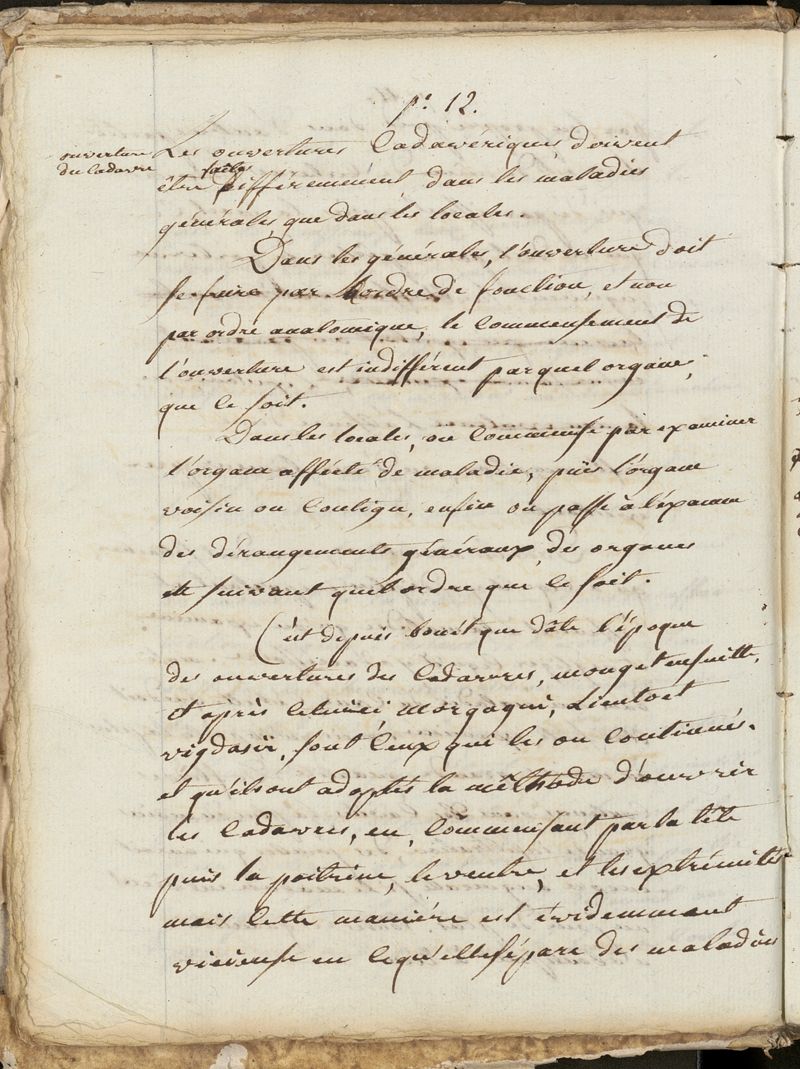 p. 12.
ouverture
du Cadavre
Les ouvertures Cadavériques doivent
faites
être différemment dans les maladies
générales que dans les locales.
Dans les générales, l'ouverture doit
se faire par l'ordre de fonction, et non
par ordre anatomique, le Commensement de
l'ouverture est indifférent par quel organe,
que ce soit.
Dans les locales, on Commense par examiner
l'organe affecté de maladie, puis l'organe
voisin ou Contigu, enfin on passe à l'examen
des dérangements généraux des organes
et suivant quel ordre que ce soit.
C'est depuis bonèt que date l'époque
des ouvertures des Cadavres, mouget ensuitte,
et après Celuici morgagni, Lieutoet
vigdasir, sont Ceux qui les on Continués.
et qu'ils ont adoptés la méthode d'ouvrir
les Cadavres, en Commensant par la tête
puis la poitrine, le ventre, et les extrémités
mais Cette manière est évidemmant
vicieuse en Cequ'elle sépare des maladies